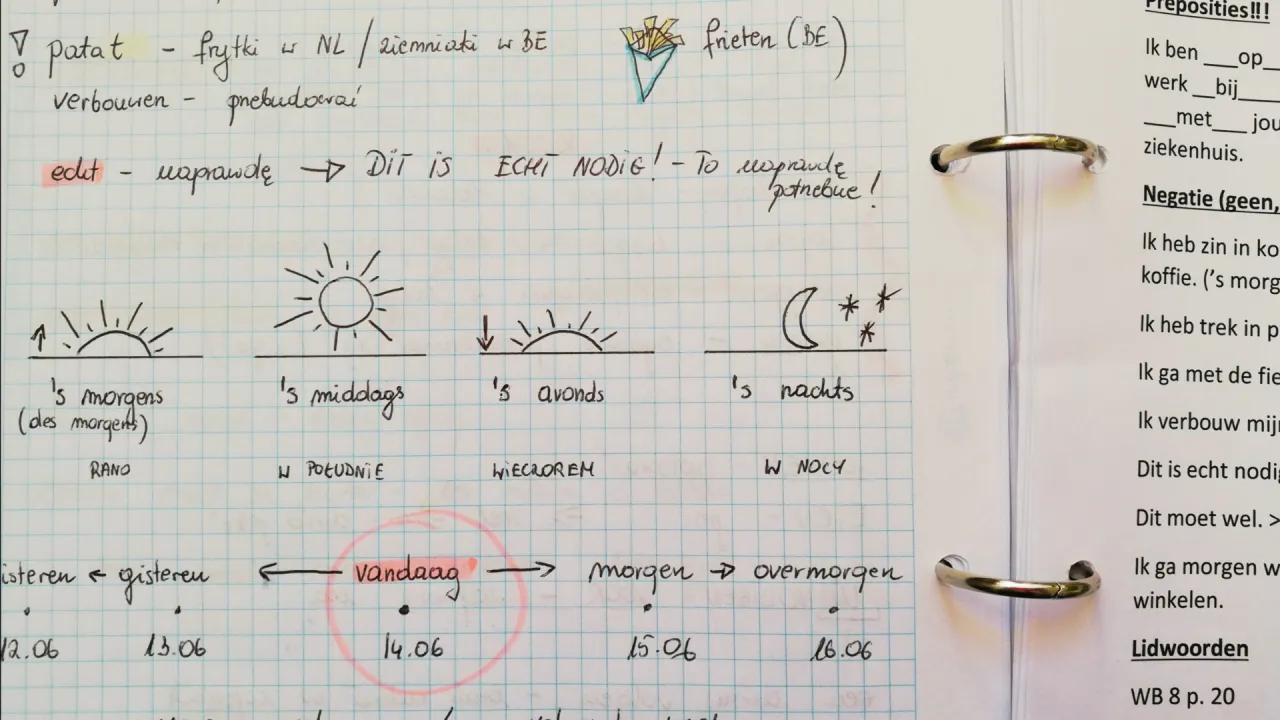 ! patat - frytki w NL / ziemniaki w BE frieten (BE)
verbouwen - przebudować
echt - naprawdę → DIT IS ECHT NODIG! - To naprawdę
potrzebne!
's morgens 's middags 's avonds 's nachts
(des morgens)
RANO W POŁUDNIE WIECZOREM W NOCY
isteren ← gisteren ← vandaag → morgen → overmorgen
12.06 13.06 14.06 15.06 16.06
Preposities!!!
Ik ben ___op_
werk __bij____
___met___ jou
ziekenhuis.
Negatie (geen,
Ik heb zin in ko
koffie. ('s morg
Ik heb trek in p
Ik ga met de fie
Ik verbouw mij
Dit is echt nodig
Dit moet wel. >
Ik ga morgen w
winkelen.
Lidwoorden
WB 8 p. 20